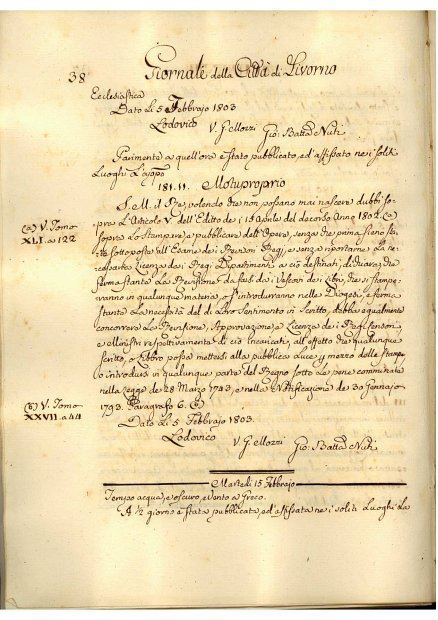 38
Giornale della Città di Livorno
Ecclesiastica
Dato li 5 Febbrajo 1803
Lodovico V. Gellozzi Gio: Batta Nuti
Parimente a quell'ora è stato pubblicato, ed affisato nei soliti
Luoghi L'appo
181.11. Motuproprio
S. M. il Re, volendo che non possano mai nascere dubbi so-
pra L'Articolo V dell'Editto de i 15 Aprile del decorso Anno 1802 (a)
sopra Lo Stampare, e pubblicare dell'Opere, senza che prima sieno sta-
te sottoposte all'Esame dei Revisori Regj, e senza riportarne La ne-
cessaria Licenza dei Regi Dipartimenti a ciò destinati, dichiara, che
ferma stante La Revisione da farsi da i Vescovi dei Libri, che si stampe-
ranno in qualunque materia, o s'introdurranno nelle Diogesi, e ferma
stante La necessità del di Loro Sentimento in Scritto, debba egualmente
concorrere La Revisione, Approvazione, e Licenza dei Regj Censori,
e Ministri respettivamente di ciò incaricati, all'effetto che qualunque
Scritto, o Libbro possa mettersi alla pubblica Luce per mezzo delle Stampe,
o introdursi in qualunque parte del Regno sotto Le pene comminate
nella Legge de 28 Marzo 1743, e nella Notificazione de 30 Gennajo
1793. Paragrafo 6. (b)
Dato Li 5 Febbrajo 1803.
Lodovico V. Gellozzi Gio: Batta Nuti
(a) V. Tomo
XLI. a 122
(b) V. Tomo
XXVII. a 44
Martedì 15 Febbrajo
Tempo acqua, e oscuro, e vento a Greco.
A ½ giorno è stata pubblicata, ed affissata nei soliti Luoghi La